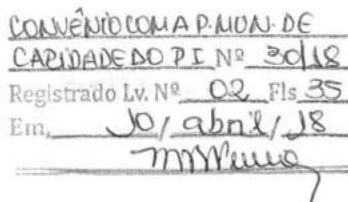 CONVÊNIO COM A P. MUN. DE
CARIDADE DO PI Nº 30/18
Registrado Lv. Nº 02 Fls 35
Em, 10/ abril/ 18